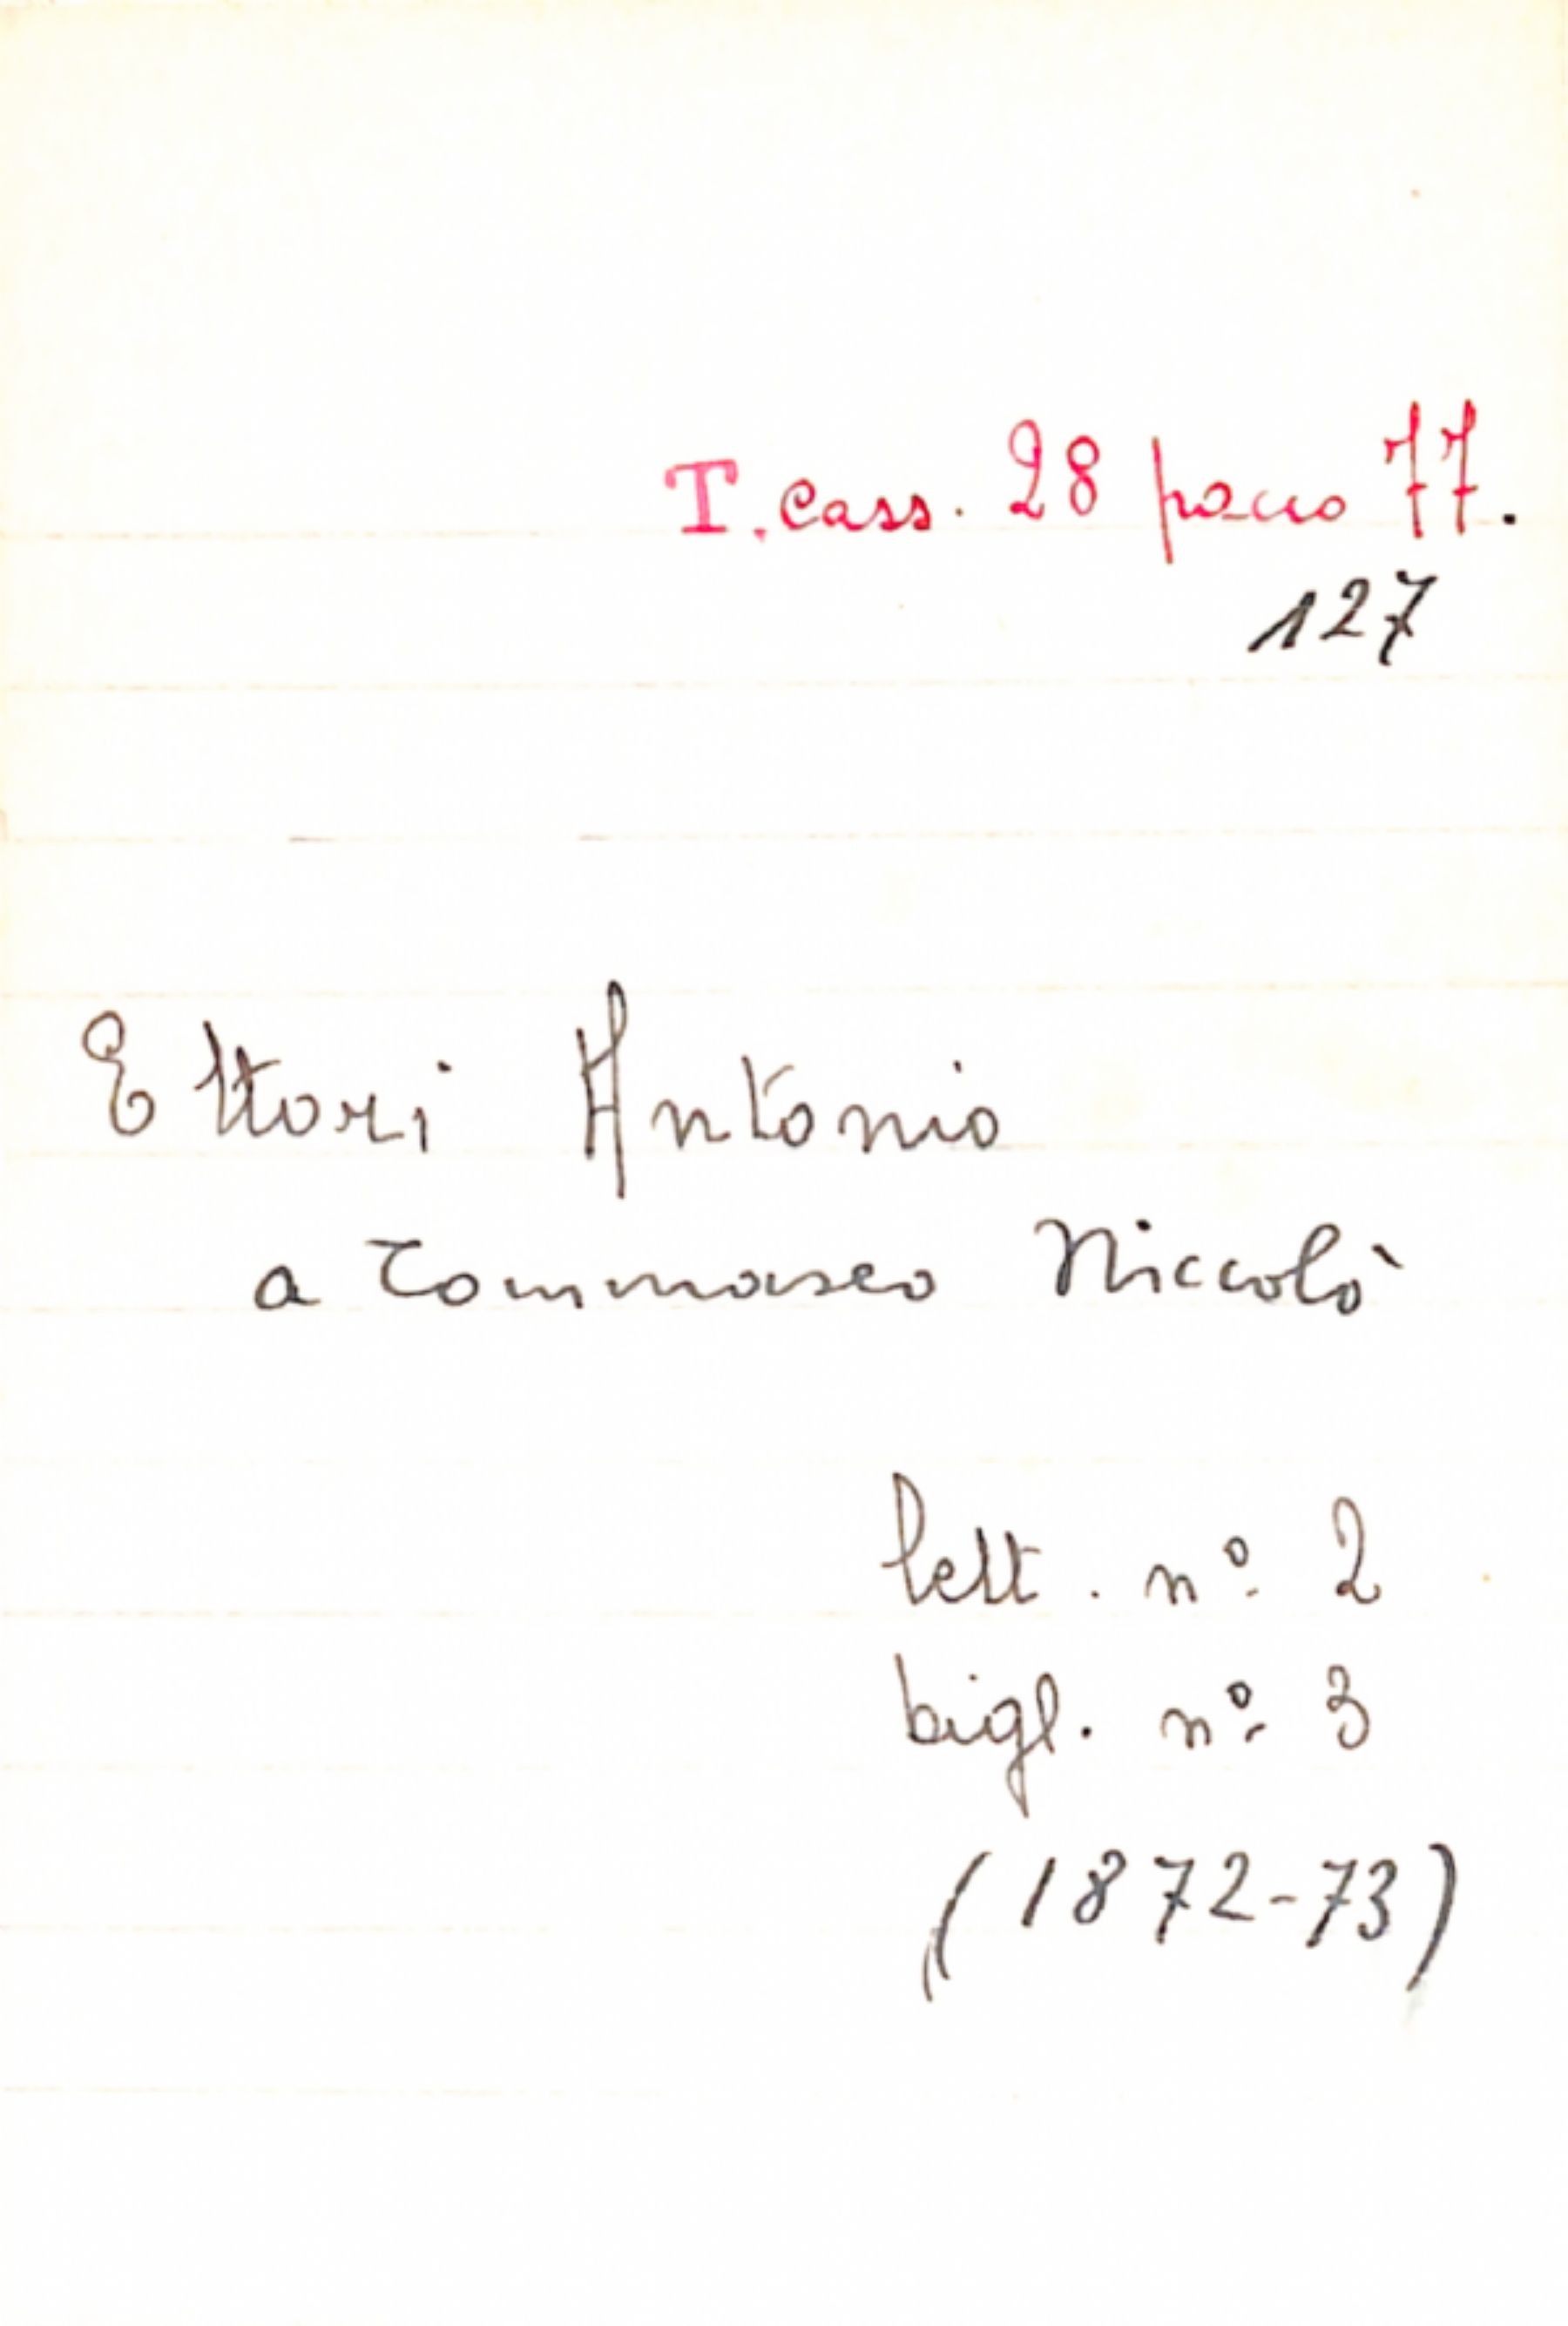 T. Cass. 28 pacco 77.
127
Ettori Antonio
a Tommaseo Niccolò
lett. nº 2
bigl. nº 3
(1872-73)